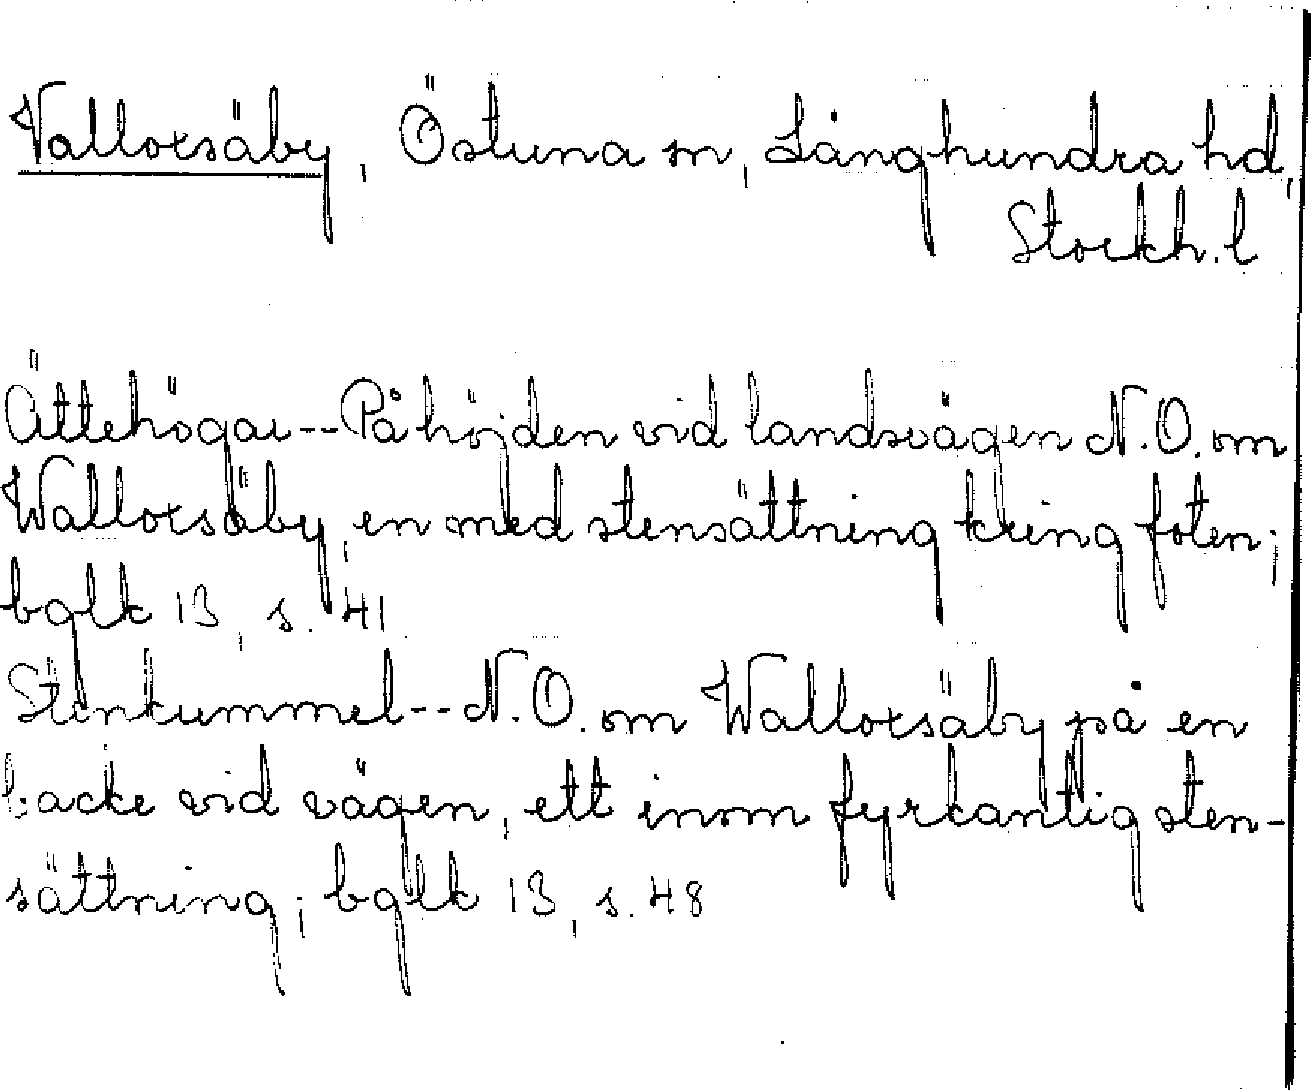 Valloxsäby, Östuna sn, Långhundra hd,
Stockh. l
Ättehögar--På höjden vid landsvägen N.O. om
Walloxsäby, en med stensättning kring foten;
bglk 13, s. 41
Stenkummel--N.O. om Walloxsäby på en
backe vid vägen, ett inom fyrkantig sten-
sättning; bglk 13, s. 48